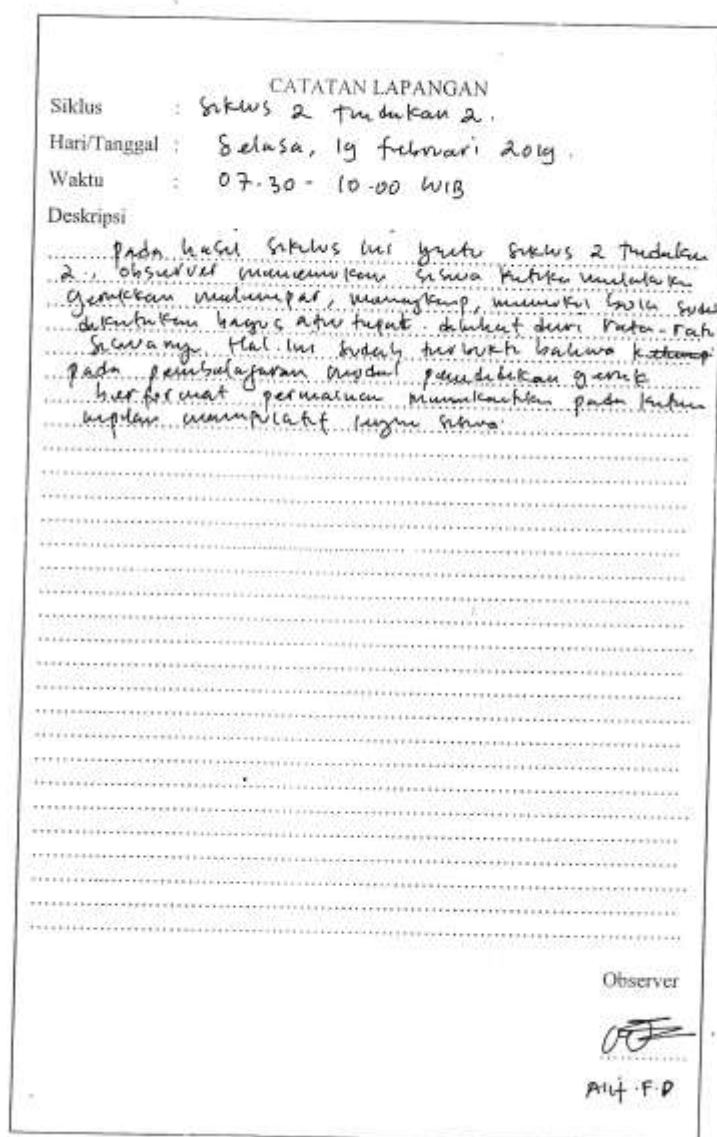 CATATAN LAPANGAN
Siklus : Siklus 2 Tindakan 2.
Hari/Tanggal : Selasa, 19 februari 2019.
Waktu : 07.30 - 10.00 WIB
Deskripsi
Pada hasil Siklus ini yaitu Siklus 2 Tindakan
2., observer menemukan siswa ketika melakukan
gerakkan melempar, menangkap, memukul bola sudah
dikatakan bagus atau tepat. dilihat dari rata-rata
Siswanya. Hal ini sudah terbukti bahwa
pada pembelajaran model pendidikan gerak
berformat permainan pada
manipulatif siswa.
Observer
Alif .F.D